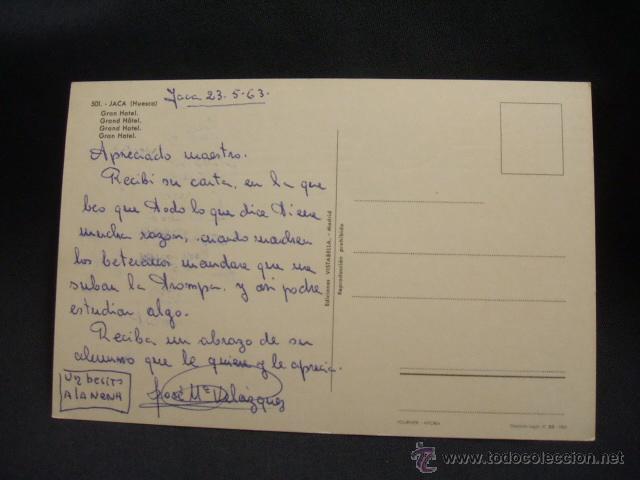 501. - JACA (Huesca)
Gran Hotel.
Grand Hôtel.
Grand Hotel.
Gran Hotel.
Jaca 23-5-63.
Apreciado maestro.
Recibí su carta, en la que
beo que todo lo que dice tiene
mucha razon, cuando marchen
los beteranos mandare que me
suban la trompa, y asi podre
estudiar algo.
Reciba un abrazo de su
alumno que le quiere y le aprecia.
José Mª Velázquez
UN besito
A LA NENA
Ediciones VISTABELLA. - Madrid
Reproducción prohibida
FOURNIER - VITORIA
todocoleccion
© www.todocoleccion.net